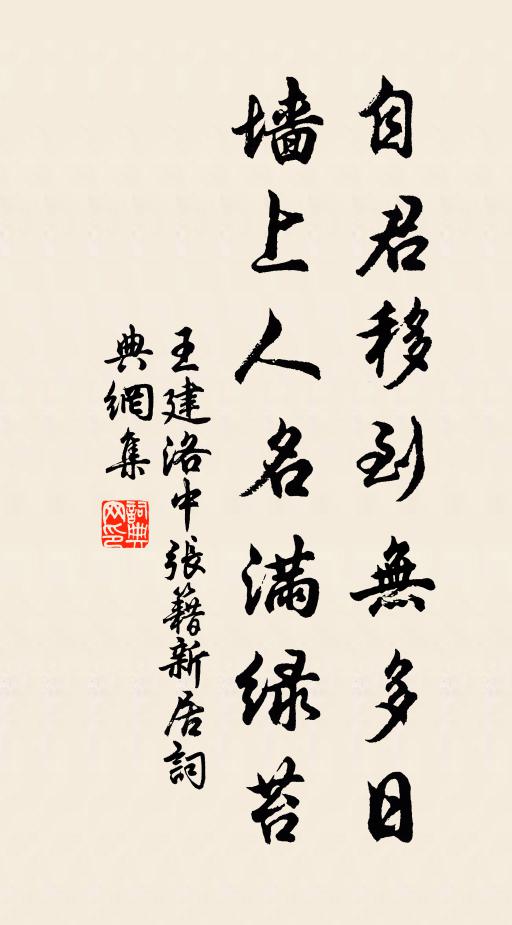 自君移到無多日
墙上人名滿绿苔
王建洛中張籍新居詞
典網集
詞典
网印